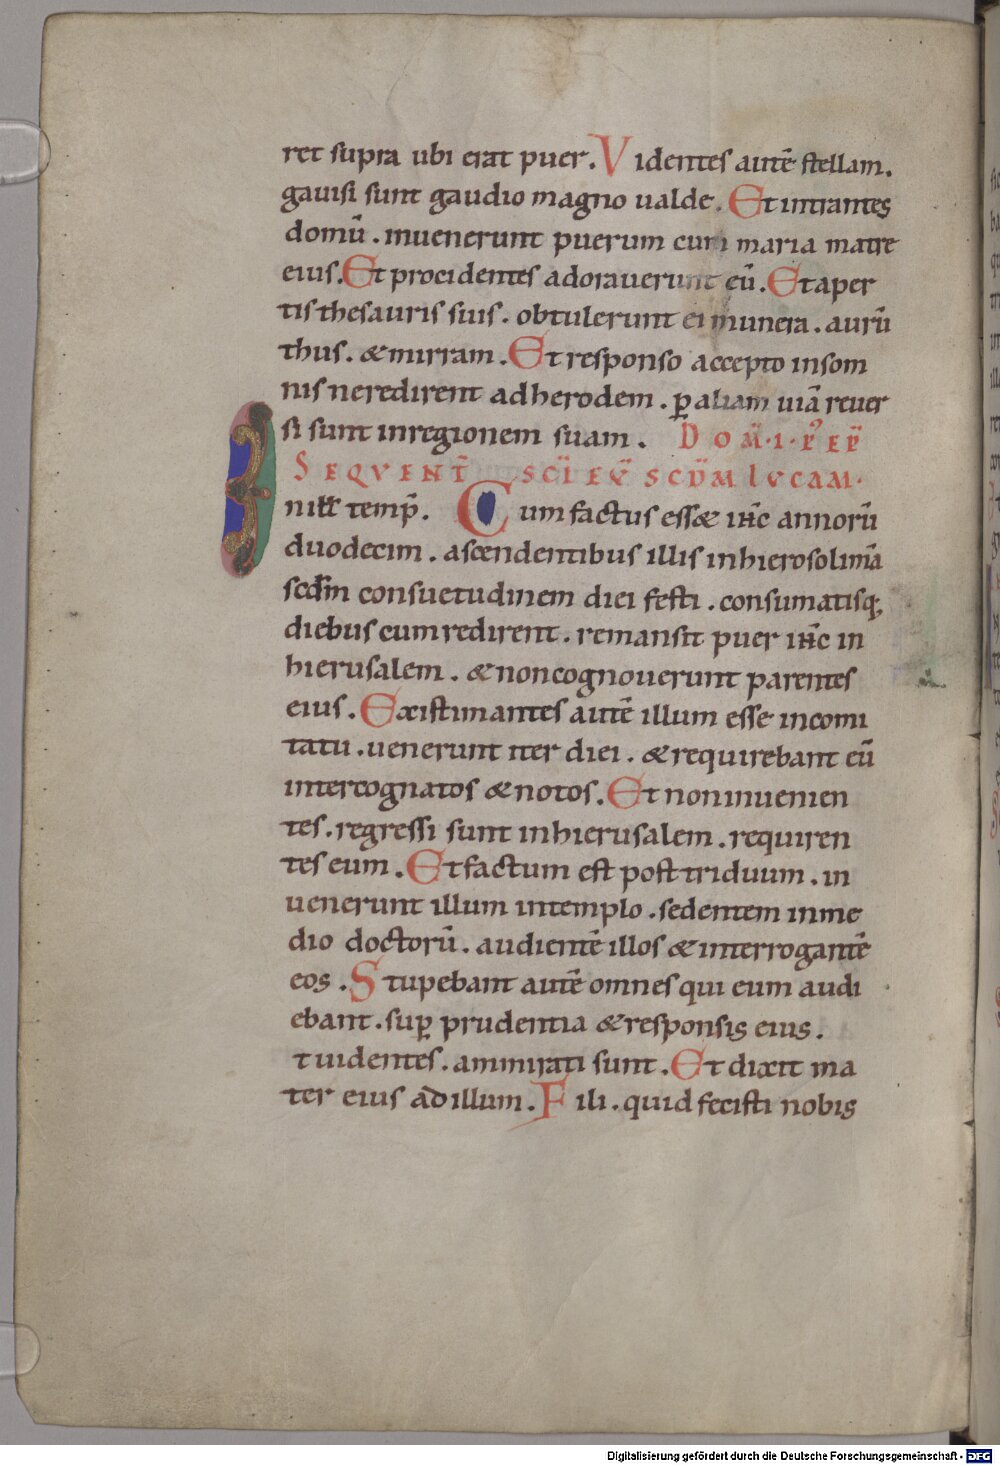 ret supra ubi erat puer. Videntes autē stellam.
gauisi sunt gaudio magno ualde. Et intrantes
domū. inuenerunt puerum cum maria matre
eius. Et procidentes adorauerunt eū. Et aper
tis thesauris suis. obtulerunt ei munera. aurū
thus. & mirram. Et responso accepto insom
nis neredirent adherodem. ꝑ aliam uiā reuer
si sunt inregionem suam. DOM̄·I·P̾ EP̄
SEQVENT̄ SC̄I EV̄ SCD̄M LVCAM·
In ill̅ temp̄. Cum factus ess& ih̄c annorū
duodecim. ascendentibus illis inhierosolimā
scd̄m consuetudinem diei festi. consumatisq;
diebus cumredirent. remansit puer ih̄c in
hierusalem. & noncognouerunt parentes
eius. Existimantes autē illum esse incomi
tatu. uenerunt iter diei. & requirebant eū
intercognatos & notos. Et noninuenien
tes. regressi sunt inhierusalem. requiren
tes eum. Et factum est post triduum. in
uenerunt illum intemplo. sedentem inme
dio doctorū. audientē illos & interrogantē
eos. Stupebant autē omnes qui eum audi
ebant. suꝑ prudentia & responsis eius.
t uidentes. ammirati sunt. Et dixit ma
ter eius ad illum. Fili. quid fecisti nobis
Digitalisierung gefördert durch die Deutsche Forschungsgemeinschaft - DFG